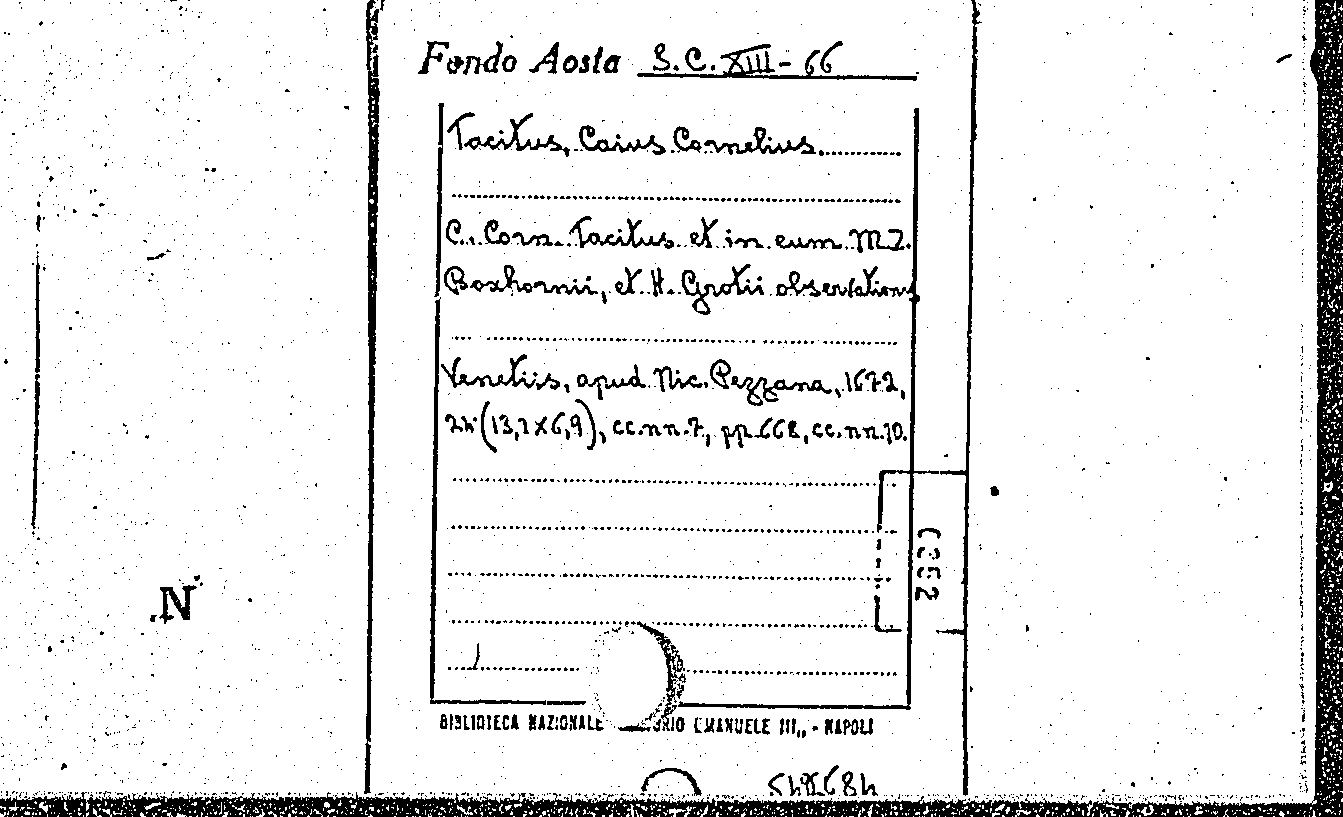 Fondo Aosta S.C. XIII - 66
Tacitus, Caius Cornelius.
C. Corn. Tacitus et in eum M.Z.
Boxhornii, et H. Grotii observations
Venetiis, apud Nic. Pezzana, 1672,
24° (13,2 x 6,9), cc.nn.7, pp.668, cc.nn.10.
BIBLIOTECA NAZIONALE EMANUELE III„ - NAPOLI
N